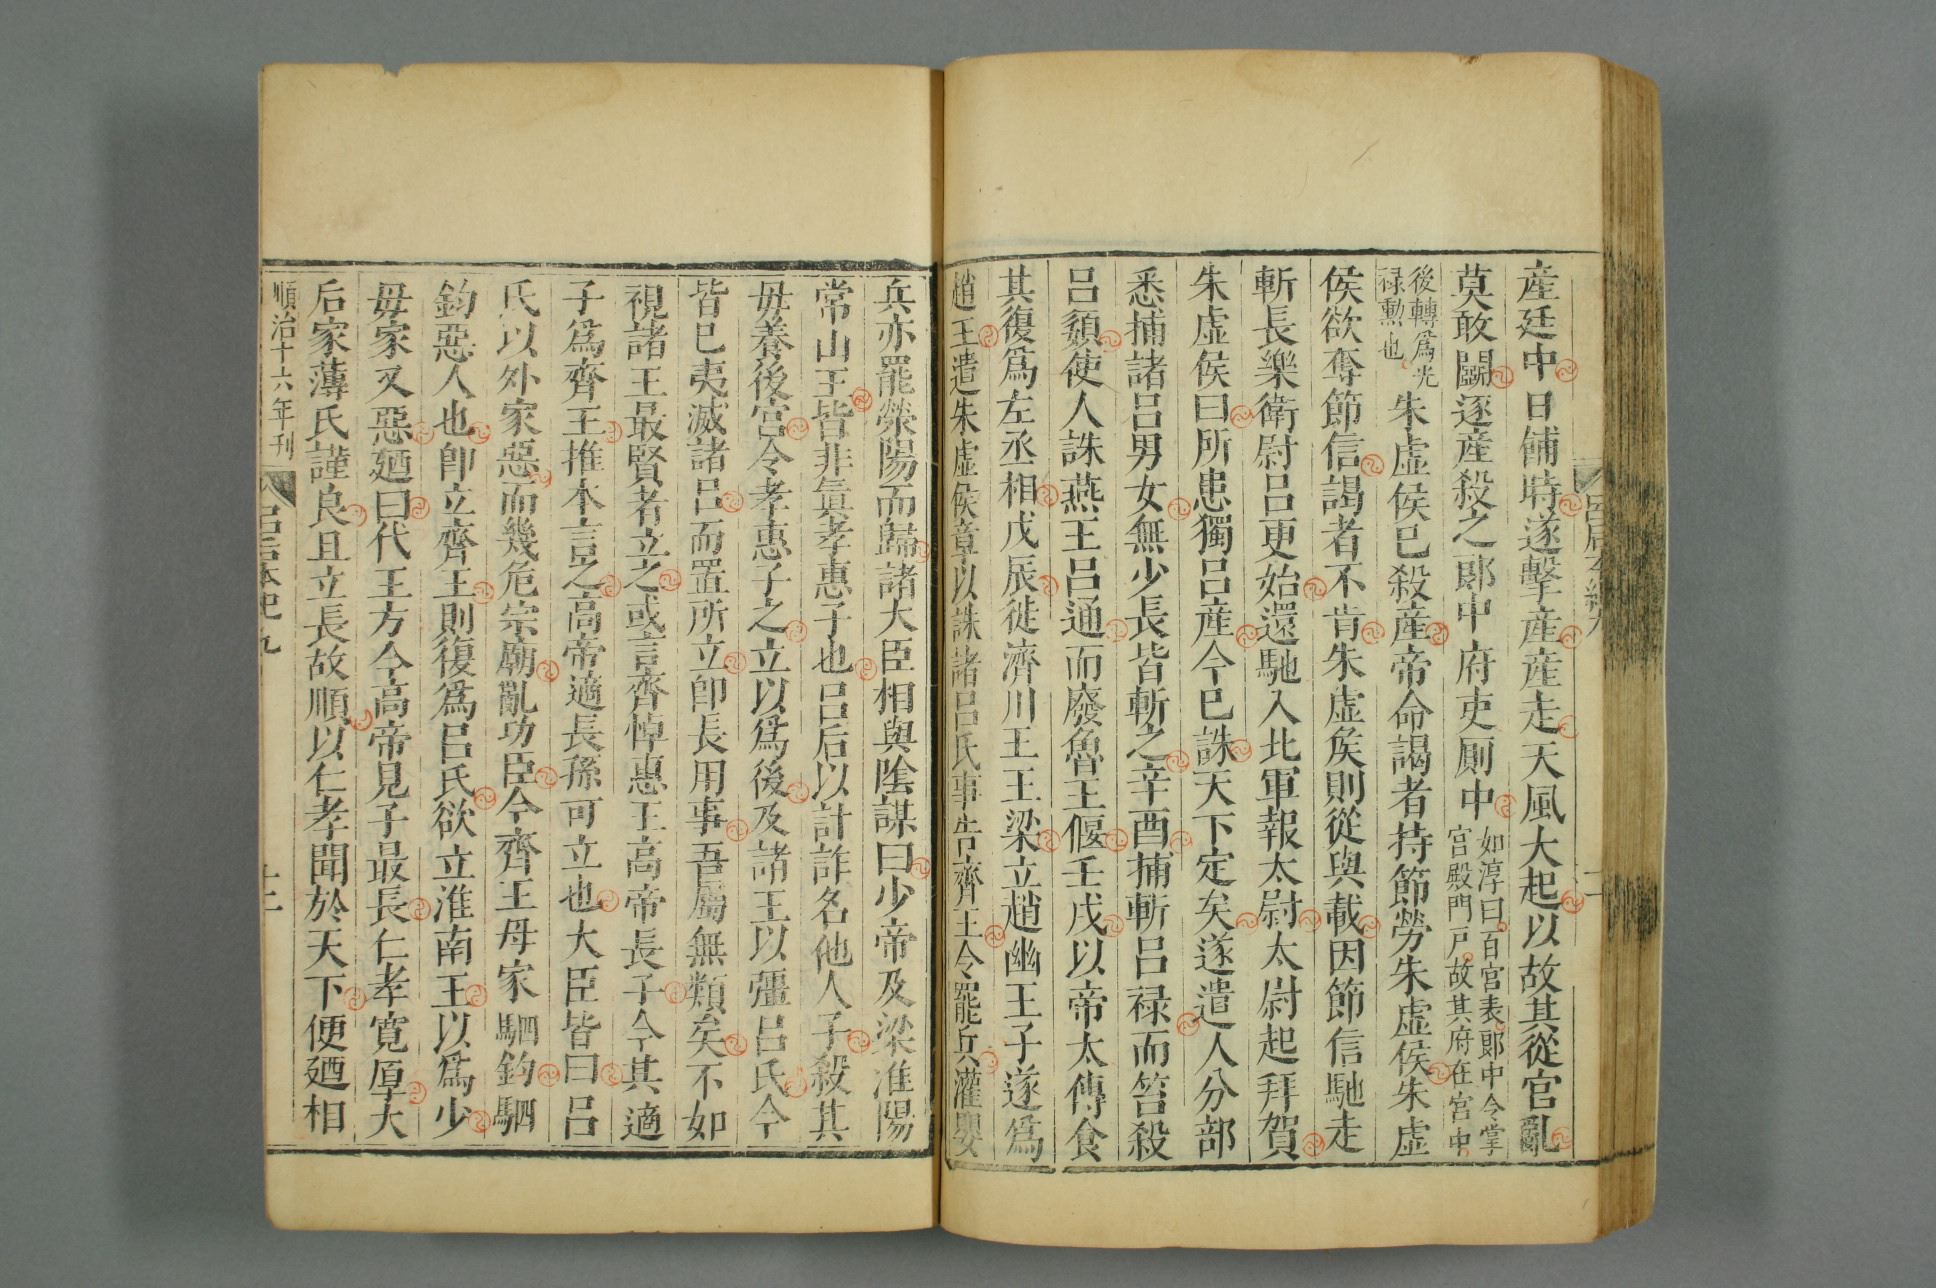 產廷中日餔時遂擊產產走天風大起以故其從官亂
莫敢鬬逐產殺之郎中府吏厠中如淳曰百官表郎中令掌
宮殿門戸故其府在宮中
後轉爲光
禄勲也朱虚侯已殺產帝命謁者持節勞朱虚侯朱虚
侯欲奪節信謁者不肯朱虚矦則從與載因節信馳走
斬長樂衛尉呂更始還馳入北軍報太尉太尉起拜賀
朱虚侯曰所患獨呂產今已誅天下定矣遂遣人分部
悉捕諸呂男女無少長皆斬之辛酉捕斬呂禄而笞殺
呂嬃使人誅燕王呂通而廢魯王偃壬戌以帝太傅食
其復爲左丞相戊辰徙濟川王王梁立趙幽王子遂爲
趙王遣朱虚侯章以誅諸呂氏事告齊王令罷兵灌嬰
兵亦罷滎陽而歸諸大臣相與陰謀曰少帝及梁淮陽
常山王皆非眞孝惠子也呂后以計詐名他人子殺其
母養後宮令孝惠子之立以爲後及諸王以彊呂氏今
皆已夷滅諸呂而置所立卽長用事吾屬無類矣不如
視諸王最賢者立之或言齊悼惠王高帝長子今其適
子爲齊王推本言之高帝適長孫可立也大臣皆曰呂
氏以外家惡而幾危宗廟亂功臣今齊王母家駟鈞駟
鈞惡人也卽立齊王則復爲呂氏欲立淮南王以爲少
母家又惡廼曰代王方今高帝見子最長仁孝寛厚太
后家薄氏謹良且立長故順以仁孝聞於天下便廼相
順治十六年刋
呂后本紀九
十二